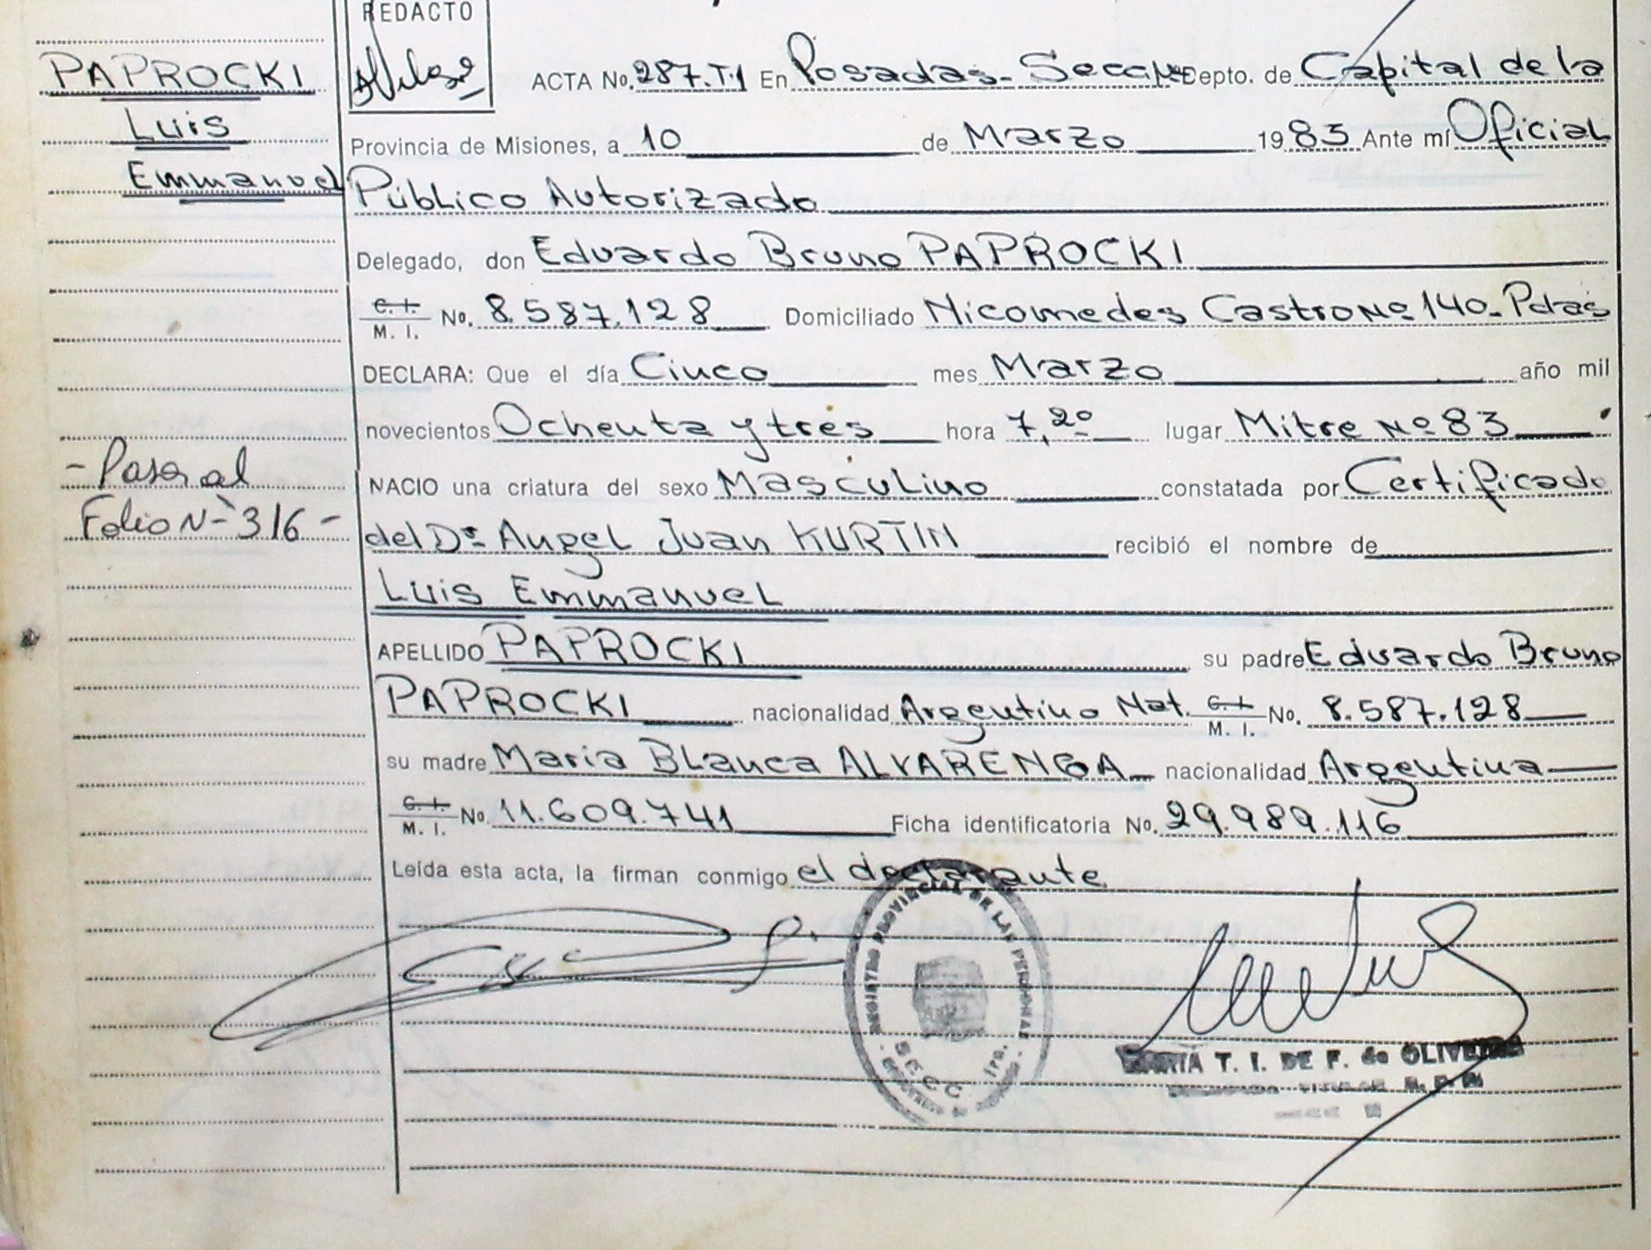 REDACTO
PAPROCKI
Luis
Emmanuel
- Pasa al
Folio Nº 316 -
ACTA No. 287.T.1 En Posadas - Secc. Depto. de Capital de la
Provincia de Misiones, a 10 de Marzo 1983 Ante mí Oficial
Público Autorizado
Delegado, don Eduardo Bruno PAPROCKI
C. I. / M. I. No. 8.587.128 Domiciliado Nicomedes Castro Nº 140 - Pdas
DECLARA: Que el día Cinco mes Marzo año mil
novecientos Ochenta y tres hora 7,20 lugar Mitre Nº 83
NACIO una criatura del sexo Masculino constatada por Certificado
del Dr Angel Juan KURTIN recibió el nombre de
Luis Emmanuel
APELLIDO PAPROCKI su padre Eduardo Bruno
PAPROCKI nacionalidad Argentino Nat. C. I. / M. I. No. 8.587.128
su madre Maria Blanca ALVARENGA nacionalidad Argentina
C. I. / M. I. No. 11.609.741 Ficha identificatoria No. 29.989.116
Leída esta acta, la firman conmigo el declarante
REGISTRO PROVINCIAL DE LAS PERSONAS
SECC. 1ra.
MARIA T. I. DE F. de OLIVEIRA